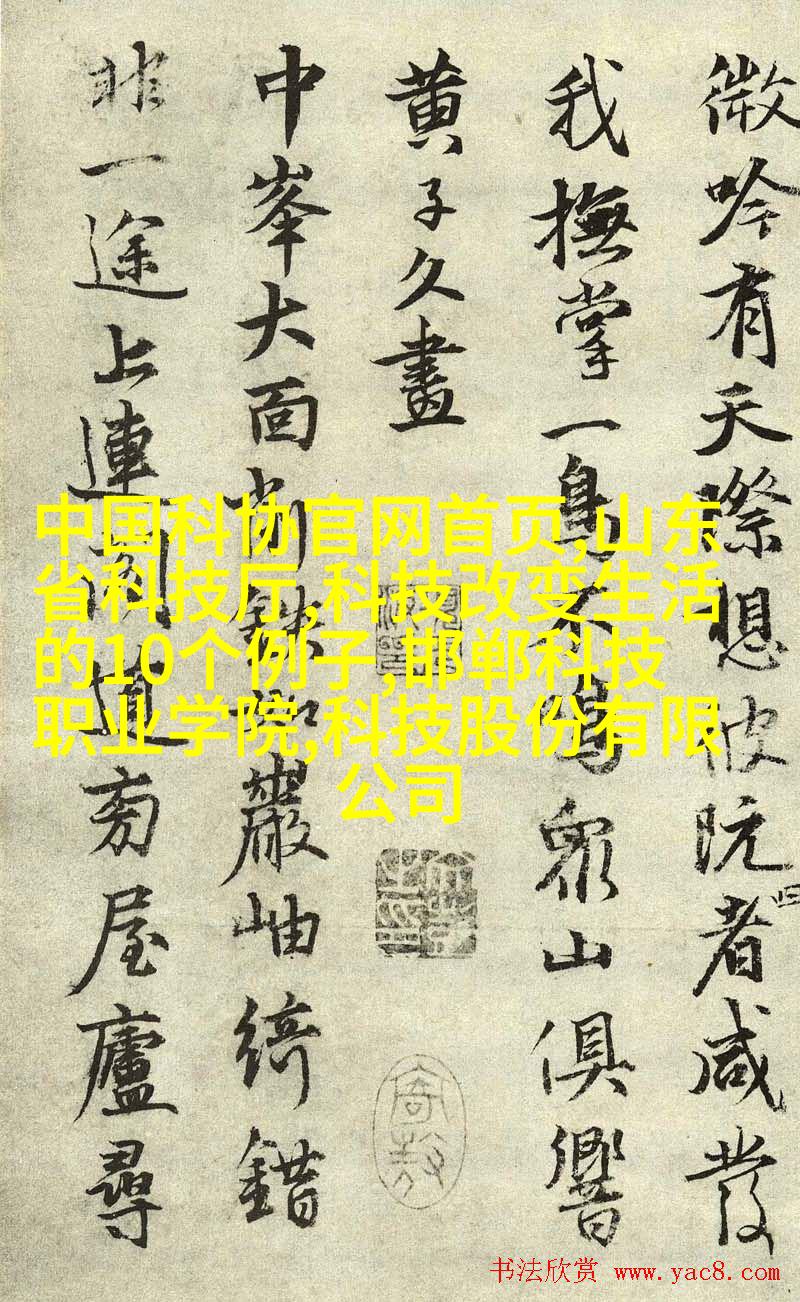 微吟有天際彼阮者咸發
我撫掌一眾山俱響
黃子久畫
中峯大面削鐵巖岫綺錯
非一途上連閣道旁屋廬尋
中国科协官网首页,山东
省科技厅,科技改变生活
的10个例子,邯郸科技
职业学院,科技股份有限
公司
书法欣赏 www.yac8.com